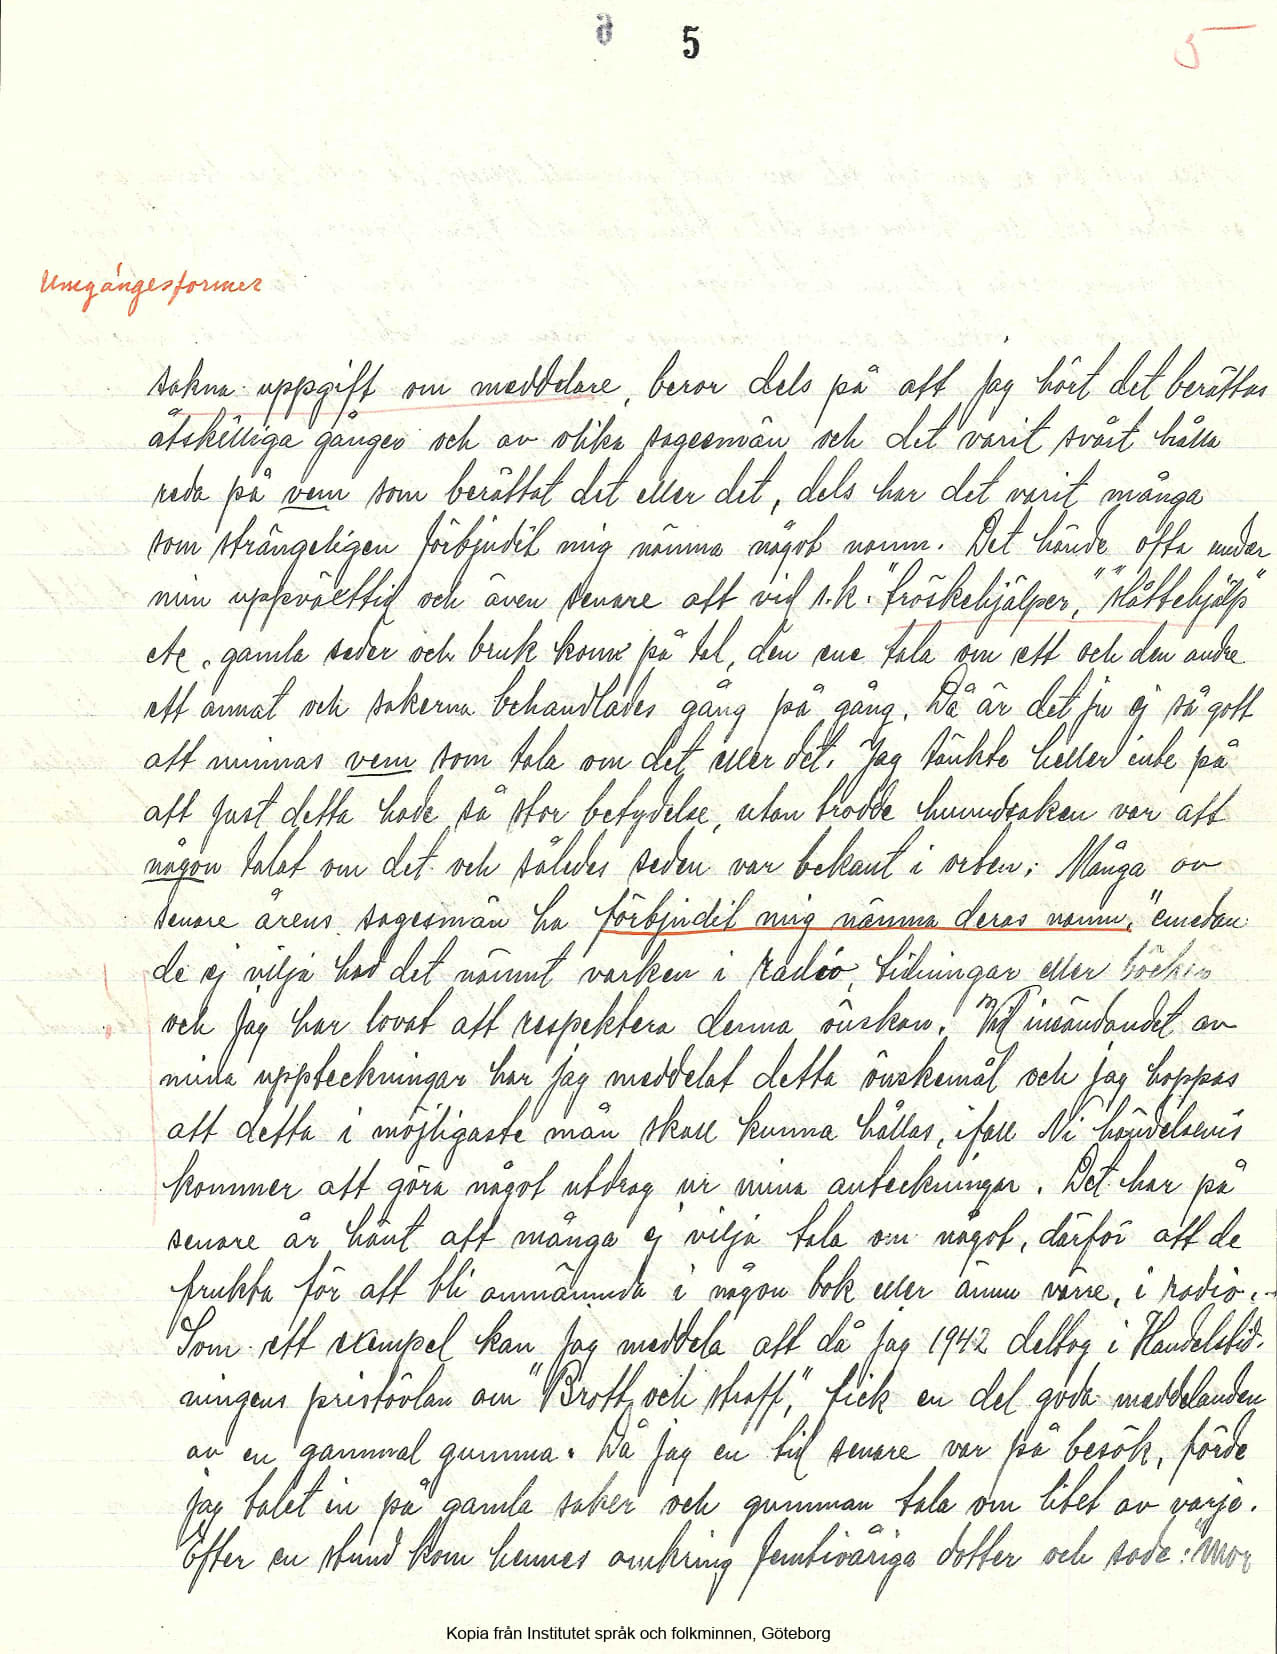 6 5 5
Umgångesformer
sakna uppgift om meddelare, beror dels på att jag hört det berättas
åtskilliga gånger och av olika sagesmän och det varit svårt hålla
reda på vem som berättat det eller det, dels har det varit många
som strängeligen förbjudit mig nämna något namn. Det hände ofta under
min uppväxttid och även senare att vid s.k. "tröskehjälper", "slåttehjälp"
etc. gamla seder och bruk kom på tal, den ene tala om ett och den andre
ett annat och sakerna behandlades gång på gång. Då är det ju ej så gott
att minnas vem som tala om det eller det. Jag tänkte heller inte på
att just detta hade så stor betydelse, utan trodde huvudsaken var att
någon talat om det och således seden var bekant i orten. Många av
senare årens sagesmän ha förbjudit mig nämna deras namn, "emedan
de ej vilja had det nämnt varken i radio, tidningar eller böcker
och jag har lovat att respektera denna önskan. Vid insändandet av
mina uppteckningar har jag meddelat detta önskemål och jag hoppas
att detta i möjligaste mån skall kunna hållas, ifall Ni händelsevis
kommer att göra något utdrag ur mina anteckningar. Det har på
senare år hänt att många ej vilja tala om något, därför att de
frukta för att bli omnämnda i någon bok eller ännu värre, i radio.-
Som ett exempel kan jag meddela att då jag 1942 deltog i Handelstid-
ningens pristävlan om "Brott och straff", fick en del goda meddelanden
av en gammal gumma. Då jag en tid senare var på besök, förde
jag talet in på gamla saker och gumman tala om litet av varje.
Efter en stund kom hennes omkring femtioåriga dotter och sade: "Mor
Kopia från Institutet språk och folkminnen, Göteborg